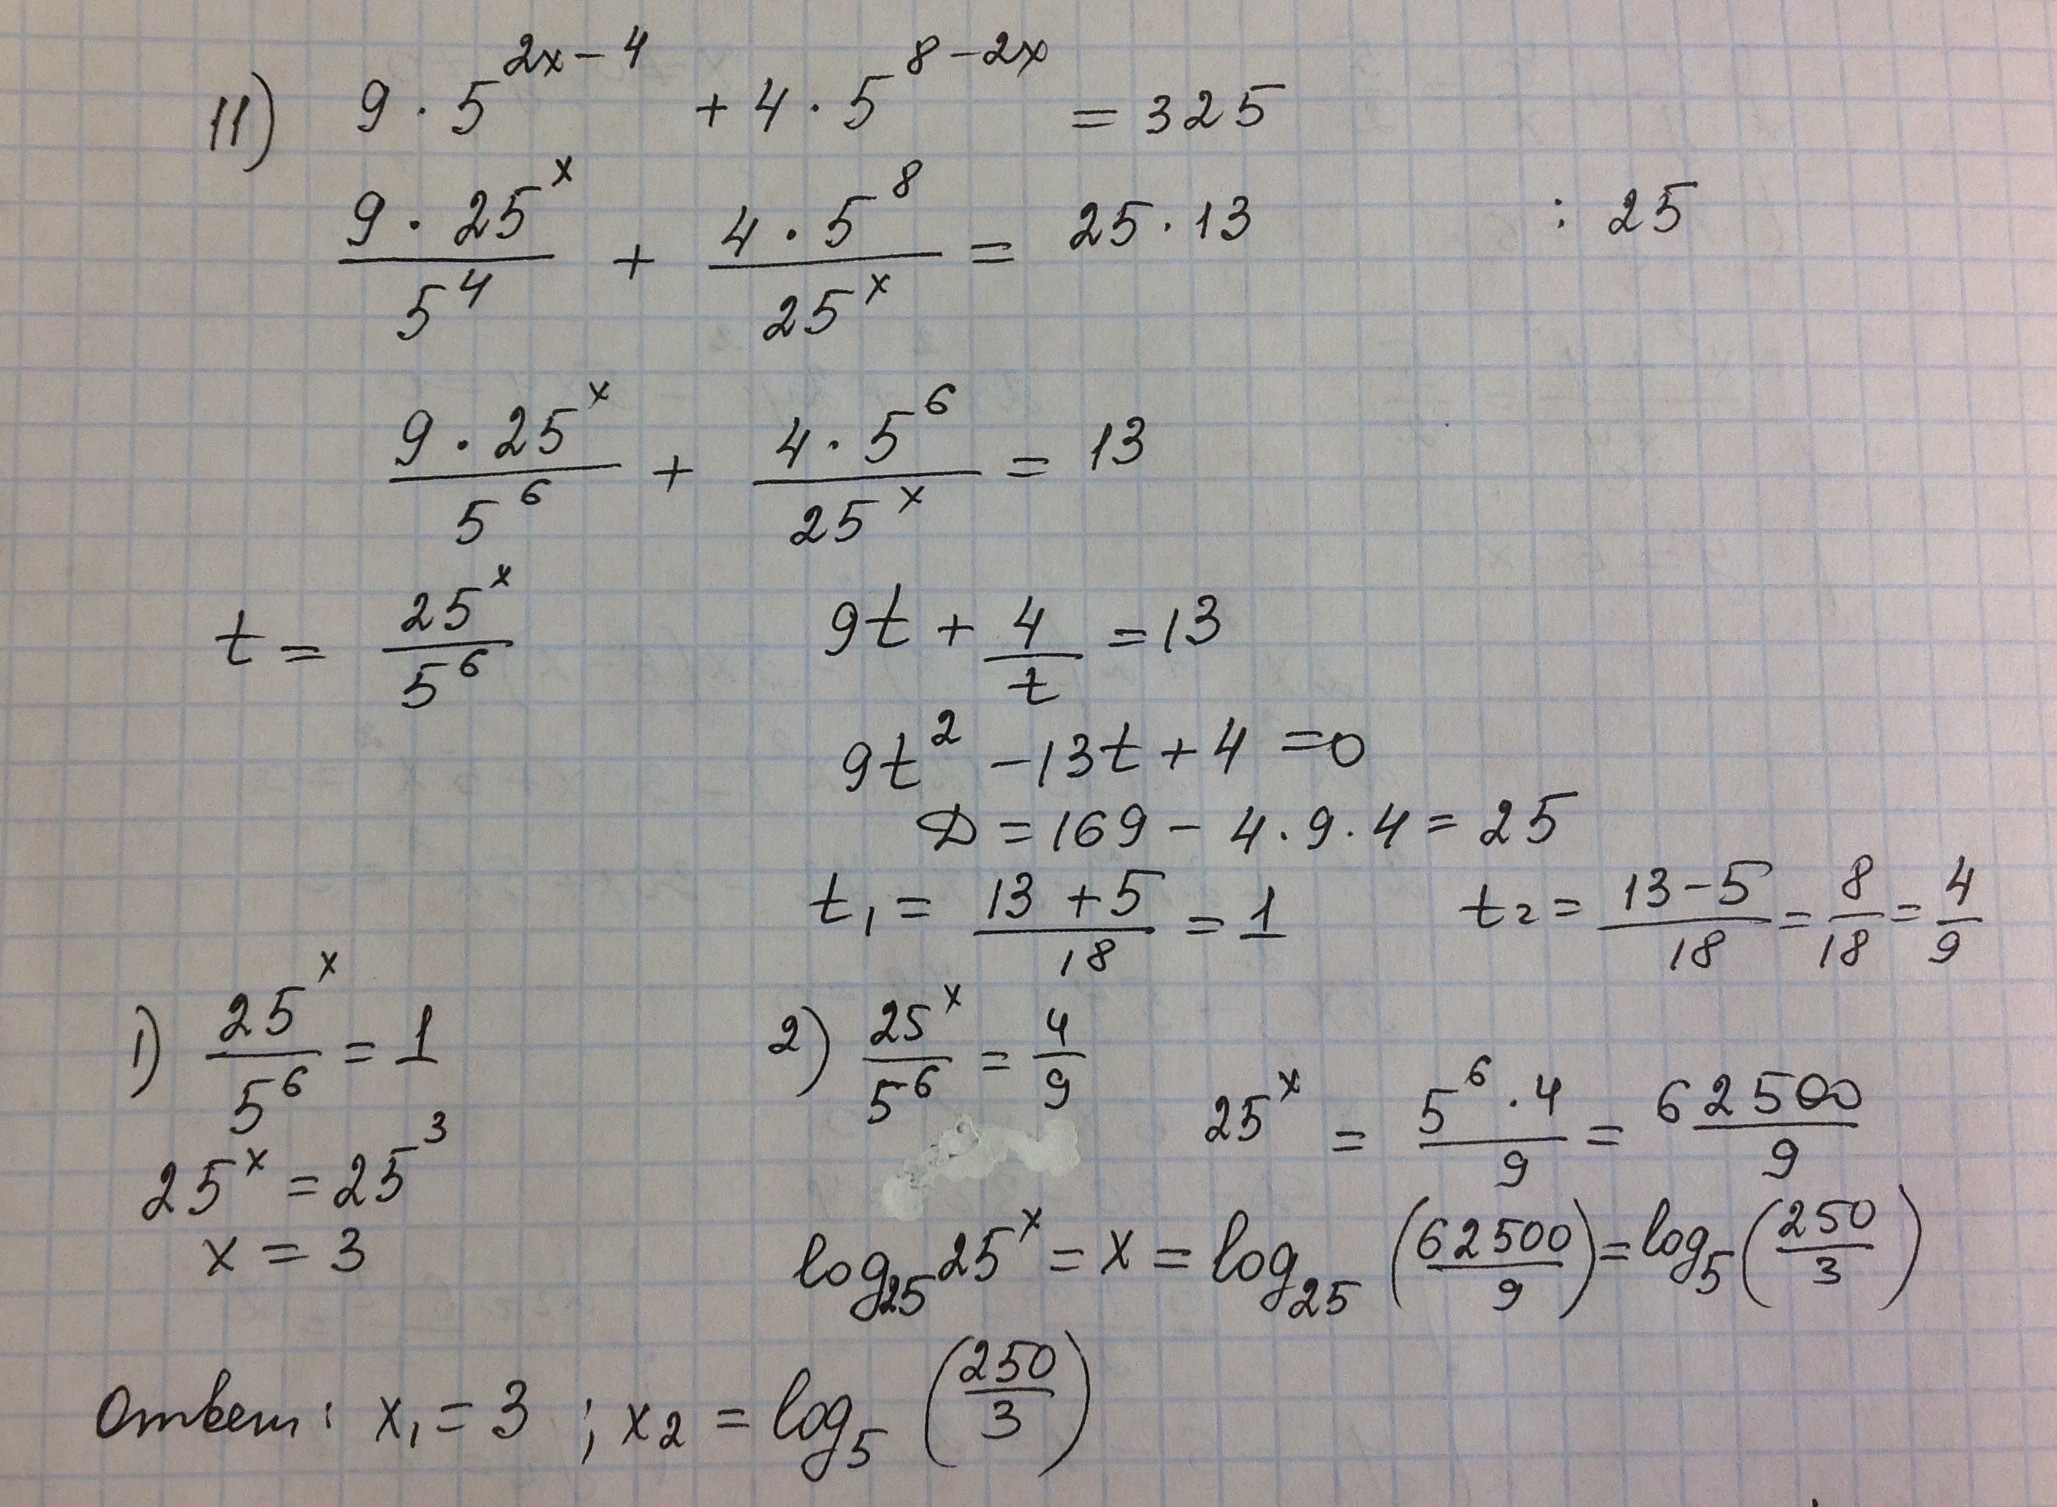 11) 9 · 5^(2x-4) + 4 · 5^(8-2x) = 325
(9 · 25^x)/(5^4) + (4 · 5^8)/(25^x) = 25 · 13 : 25
(9 · 25^x)/(5^6) + (4 · 5^6)/(25^x) = 13
t = (25^x)/(5^6) 9t + 4/t = 13
9t^2 - 13t + 4 = 0
D = 169 - 4 · 9 · 4 = 25
t₁ = (13 + 5)/18 = 1 t₂ = (13 - 5)/18 = 8/18 = 4/9
1) (25^x)/(5^6) = 1
25^x = 25^3
x = 3
2) (25^x)/(5^6) = 4/9 25^x = (5^6 · 4)/9 = 62500/9
log₂₅ 25^x = x = log₂₅ (62500/9) = log₅ (250/3)
Ответ: x₁ = 3 ; x₂ = log₅ (250/3)